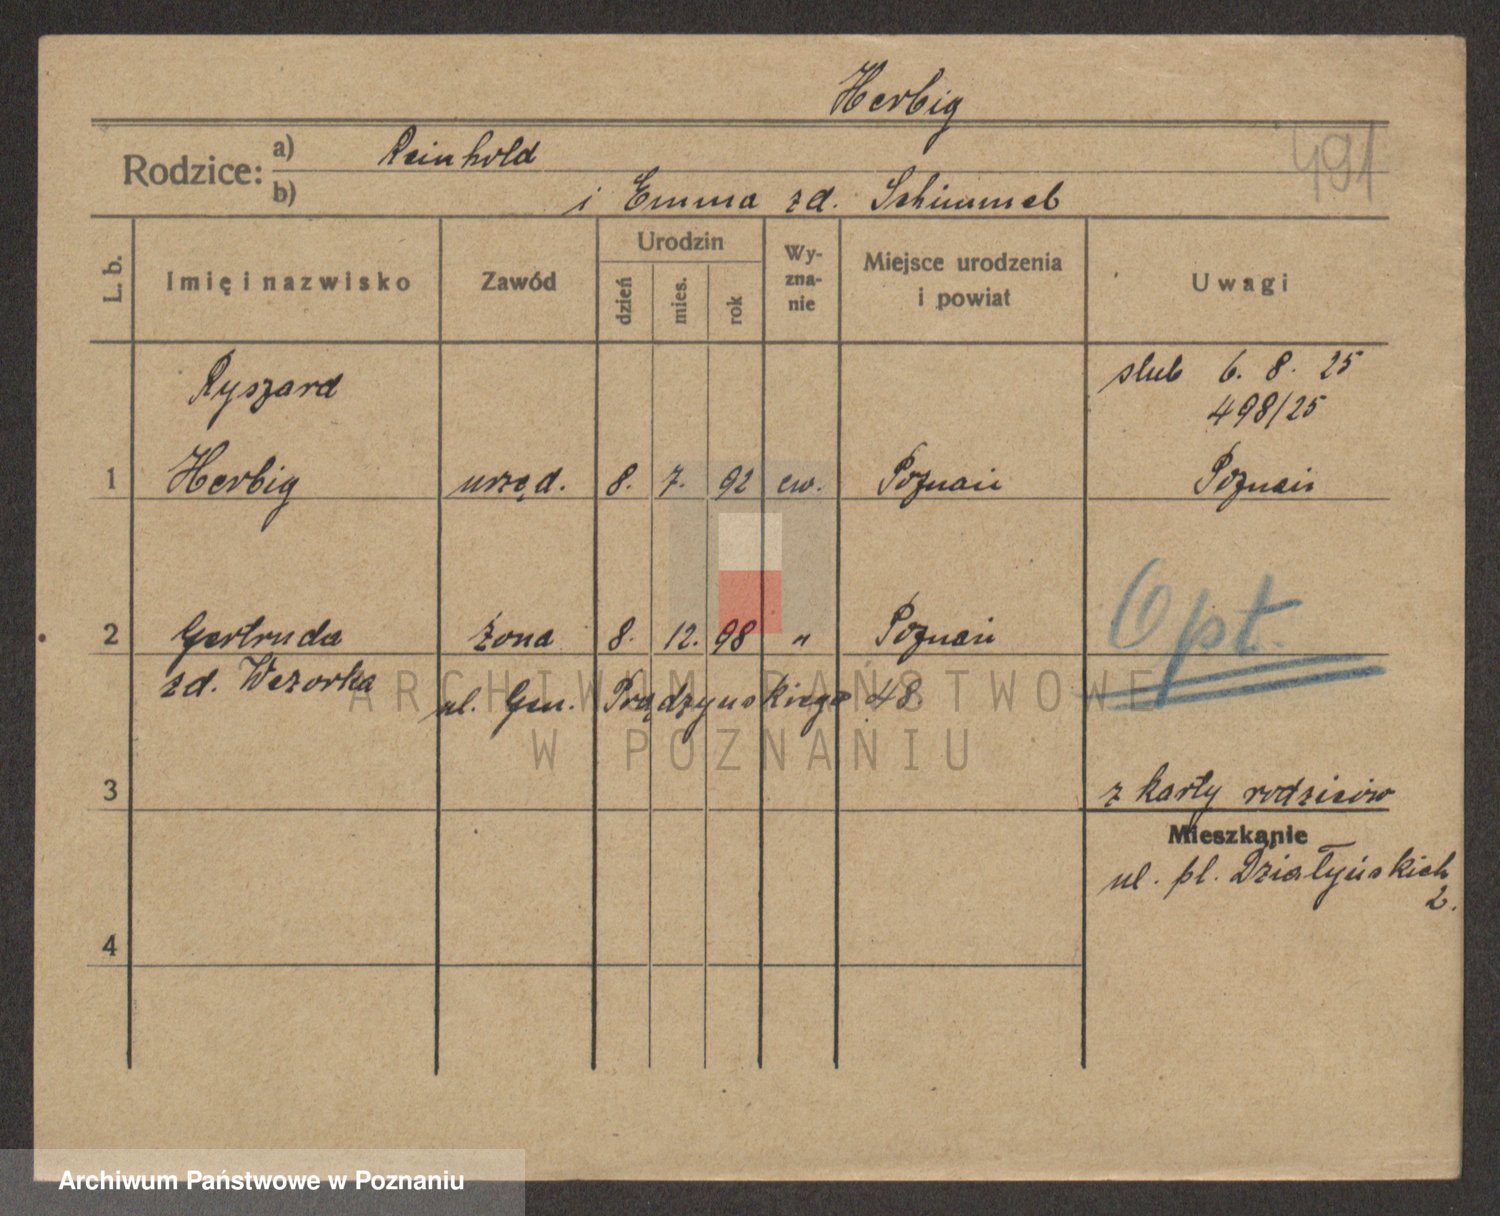 Herbig
491
Rodzice: a) Reinhold
b) i Emma zd. Schimmel
L. b. Imię i nazwisko Zawód Urodzin dzień mies. rok Wy-zna-nie Miejsce urodzenia i powiat Uwagi
Ryszard ślub 6. 8. 25
498/25
1 Herbig urzęd. 8. 7. 92 ew. Poznań Poznań
2 Gertruda żona 8. 12. 98 " Poznań Opt.
zd. Wezorka ul. Gen. Prądzyńskiego 48
ARCHIWUM PAŃSTWOWE
W POZNANIU
3 z karty rodziców
Mieszkanie
ul. pl. Działyńskich
2.
4
Archiwum Państwowe w Poznaniu